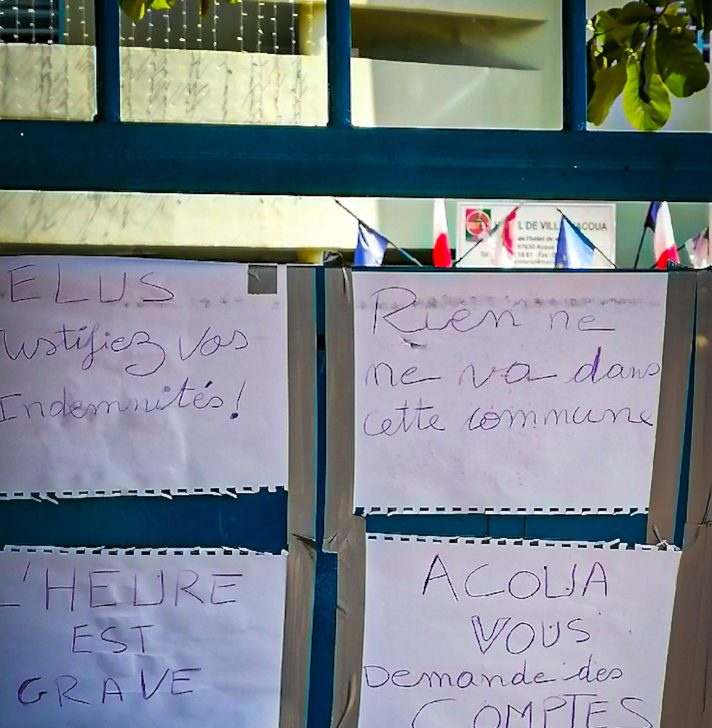 L DE VILLE ACOUA
de l'hôtel de
97630 Acoua
ELUS
ustifiez vos
Indemnités!
Rien ne
ne va dans
cette commune
L'HEURE
EST
GRAVE
ACOUA
VOUS
Demande des
COMPTES